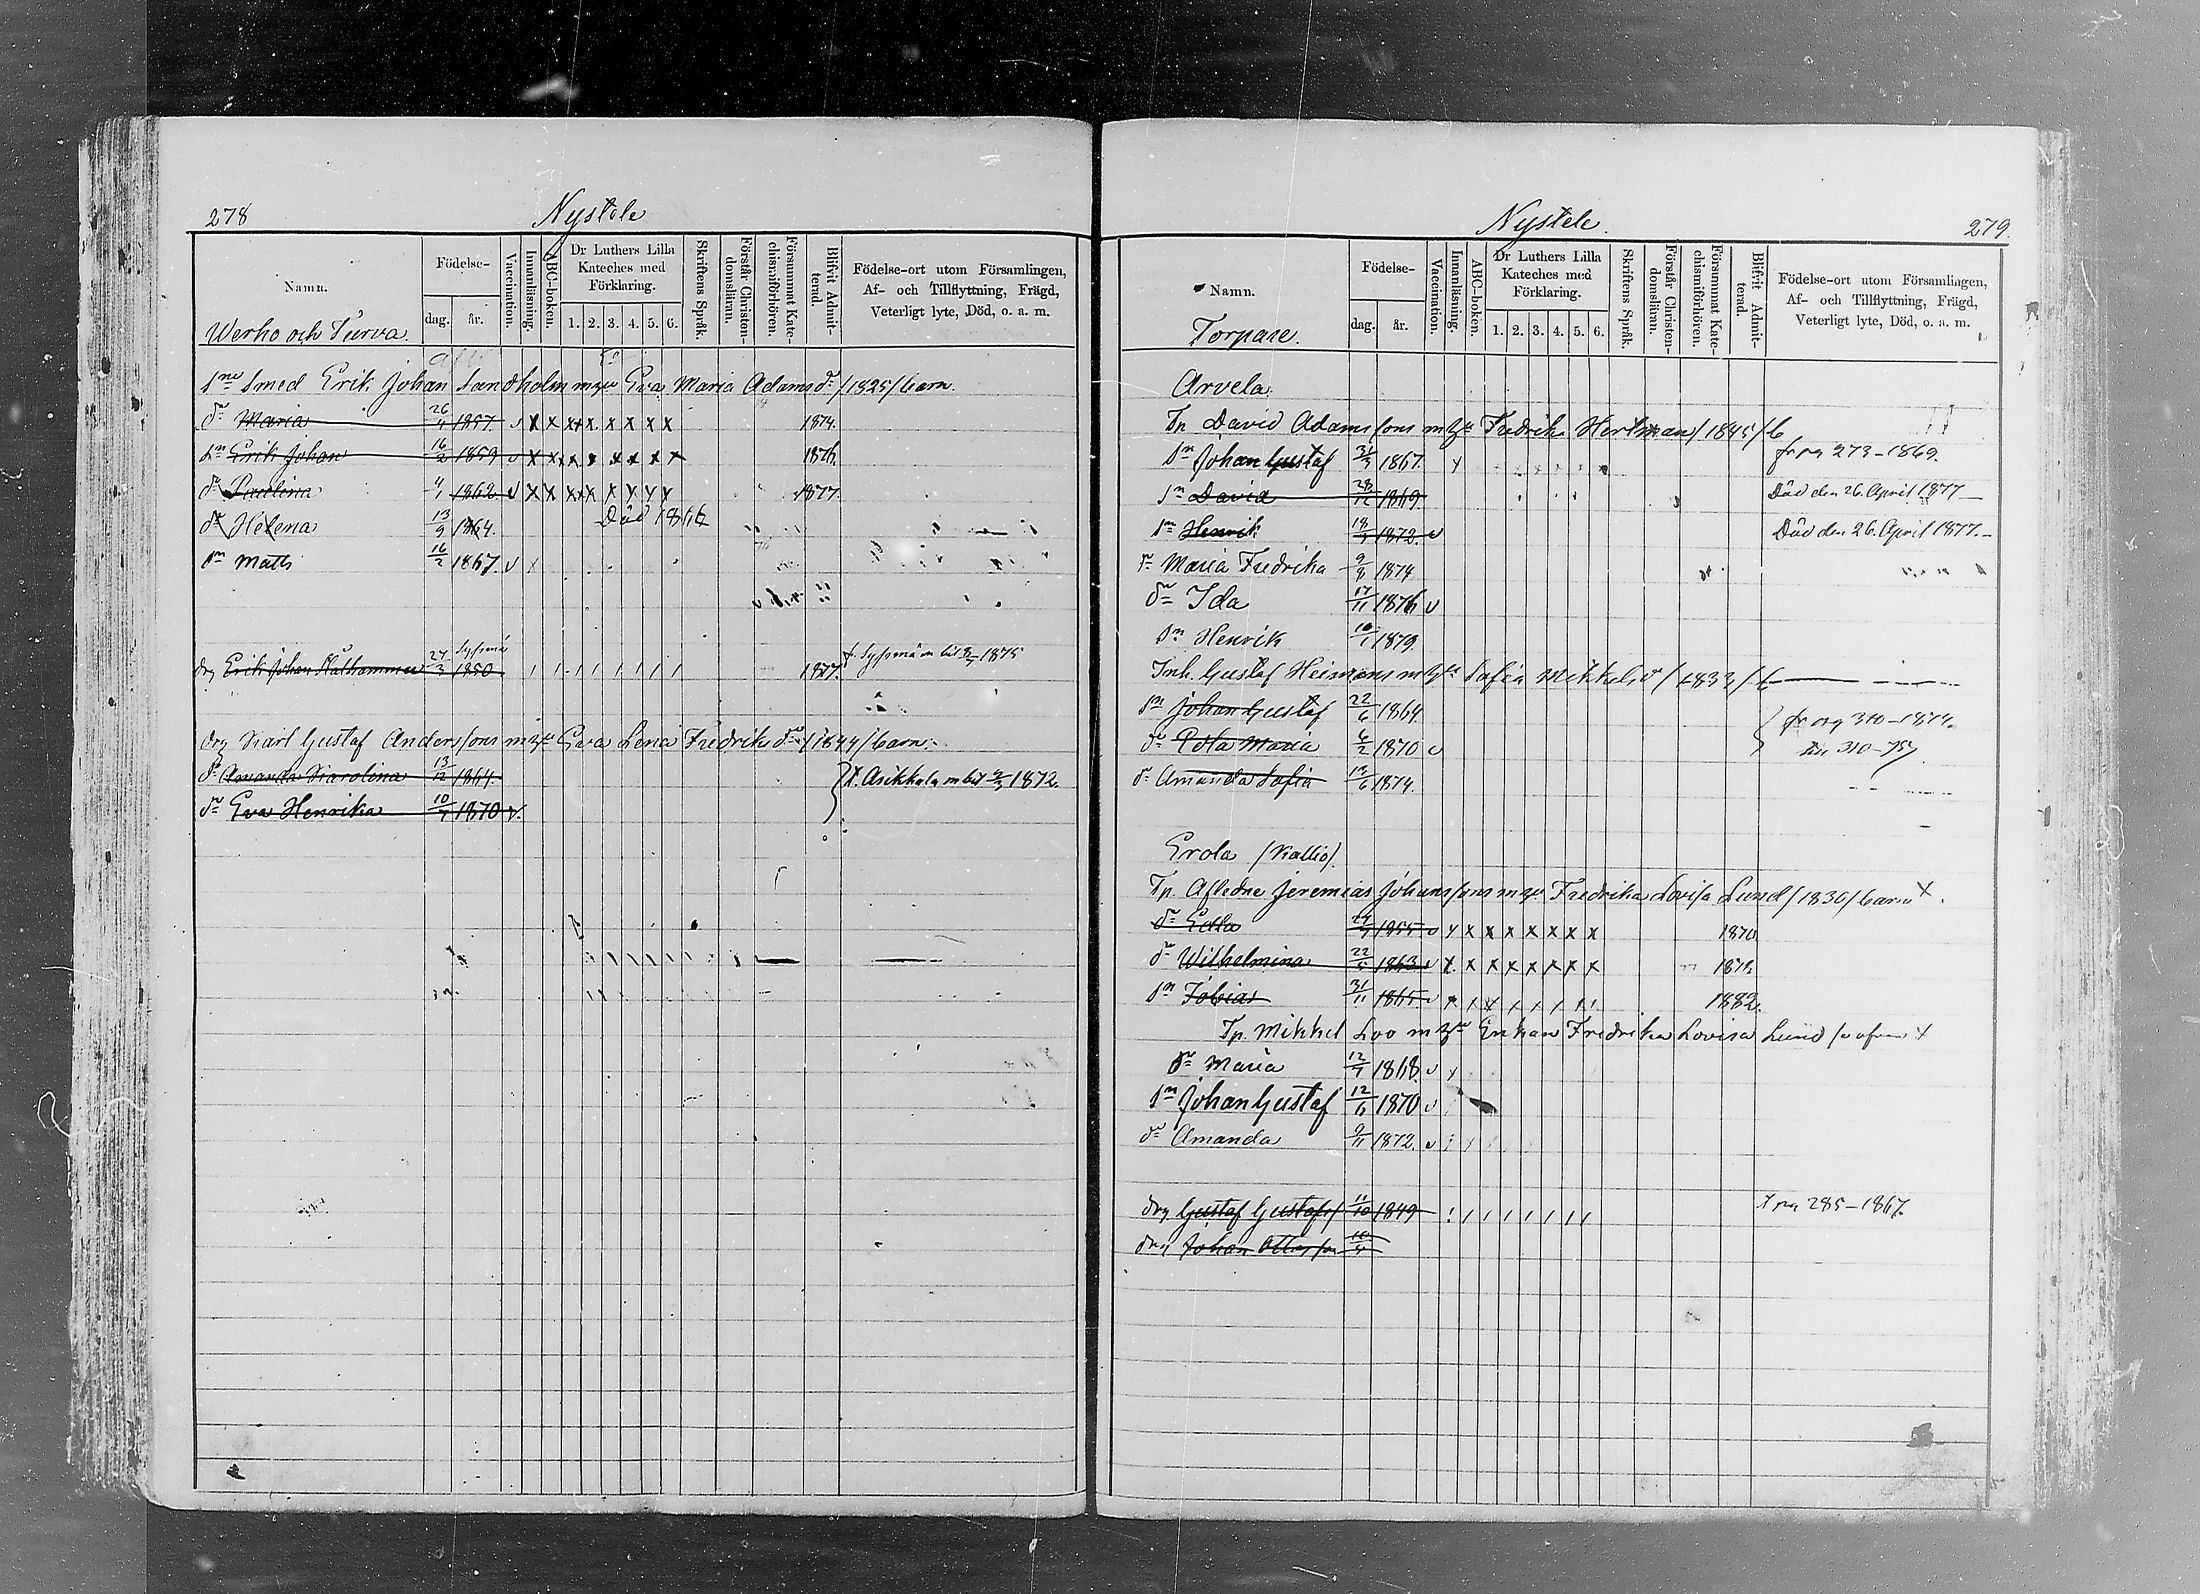 278
Nystele
Namn.
Födelse-
dag.
år.
Vaccination.
Innanläsning.
ABC-boken.
Dr Luthers Lilla Kateches med Förklaring.
1. 2. 3. 4. 5. 6.
Skriftens Språk.
Förstår Christendomsläran.
Försummat Katechismiförhören.
Blifvit Admitterad.
Födelse-ort utom Församlingen,
Af- och Tillflyttning, Frägd,
Veterligt lyte, Död, o. a. m.
Werho och Turva
Smed Erik Johan Sandholm m Eva Maria Adams dr /1825/ barn.
dr Maria 26/4 1857 v x x x x x x x x x 1874.
sn Erik Johan 16/2 1859 v x x x x x x x x 1876.
dr Paulina 4/1 1862 v x x x x x x x x 1877.
dr Helena 13/9 1864. Död 1866
sn Matts 16/2 1867. v
drg Erik Johan 27/3 1850 Sysmä 1877. 1875
drg Karl Gustaf Andersson m Eva Lena Fredriks dr /1844/ barn.
dr Amanda Karolina 13/12 1864.
dr Eva Henrika 10/7 1870 v.
t. Asikkala m bit 2/3 1872.
Nystele.
279.
Namn.
Födelse-
dag.
år.
Vaccination.
Innanläsning.
ABC-boken.
Dr Luthers Lilla Kateches med Förklaring.
1. 2. 3. 4. 5. 6.
Skriftens Språk.
Förstår Christendomsläran.
Försummat Katechismiförhören.
Blifvit Admitterad.
Födelse-ort utom Församlingen,
Af- och Tillflyttning, Frägd,
Veterligt lyte, Död, o. a. m.
Torpare.
Arvela
Tp David Adamsson m Fredrika Hertman /1845/ b
sn Johan Gustaf 31/3 1867. fr pg 273-1869.
sn David 28/12 1869. Död den 26. April 1877
sn Henrik 18/3 1872. v Död den 26. April 1877.
dr Maria Fredrika 9/8 1874
dr Ida 17/11 1876 v
sn Henrik 16/1 1879
Inh. Gustaf Heimons m Sofia Mikkels dr /1833/ b
sn Johan Gustaf 22/6 1864.
dr Maria 6/2 1870 v
dr Amanda Sofia 13/6 1874.
fr pg 310-1874.
310-75
Erola (Kallio).
Tp. Afledne Jeremias Johansson m Fredrika Lovisa Lund /1830/ barn x.
dr Edla 1855 v x x x x x x x x 1870
dr Wilhelmina 22/5 1863 v x x x x x x x x 1879.
sn Tobias 31/11 1865 v 1882.
Tp. Mikkel Loo m Enkan Fredrika Lovisa Lund se ofvan x
dr Maria 12/7 1868. v
sn Johan Gustaf 12/6 1870 v
dr Amanda 9/11 1872. v
drg Gustaf Gustafss 11/10 1849 f pg 285-1867.
drg Johan 10/4